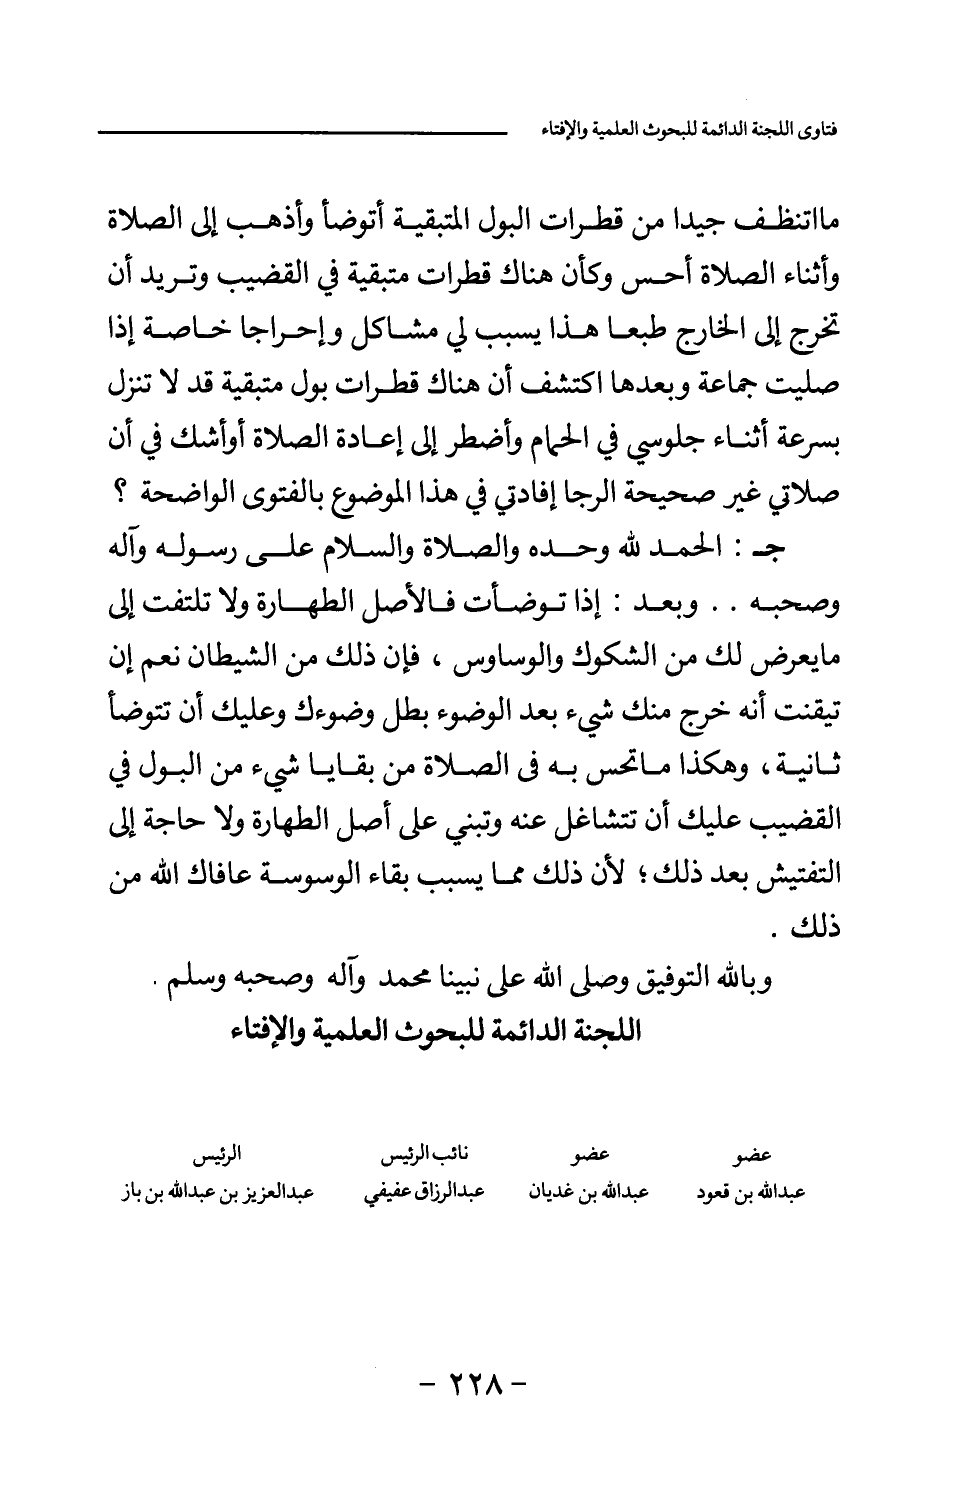 فتاوى اللجنة الدائمة للبحوث العلمية والإفتاء
مااتنظف جيدا من قطرات البول المتبقية أتوضأ وأذهب إلى الصلاة
وأثناء الصلاة أحس وكأن هناك قطرات متبقية في القضيب وتريد أن
تخرج إلى الخارج طبعا هذا يسبب لي مشاكل وإحراجا خاصة إذا
صليت جماعة وبعدها اكتشف أن هناك قطرات بول متبقية قد لا تنزل
بسرعة أثناء جلوسي في الحمام وأضطر إلى إعادة الصلاة أوأشك في أن
صلاتي غير صحيحة الرجا إفادتي في هذا الموضوع بالفتوى الواضحة ؟
جـ : الحمد لله وحده والصلاة والسلام على رسوله وآله
وصحبه . . وبعد : إذا توضأت فالأصل الطهارة ولا تلتفت إلى
مايعرض لك من الشكوك والوساوس ، فإن ذلك من الشيطان نعم إن
تيقنت أنه خرج منك شيء بعد الوضوء بطل وضوءك وعليك أن تتوضأ
ثانية ، وهكذا ماتحس به فى الصلاة من بقايا شيء من البول في
القضيب عليك أن تتشاغل عنه وتبني على أصل الطهارة ولا حاجة إلى
التفتيش بعد ذلك ؛ لأن ذلك مما يسبب بقاء الوسوسة عافاك الله من
ذلك .
وبالله التوفيق وصلى الله على نبينا محمد وآله وصحبه وسلم .
اللجنة الدائمة للبحوث العلمية والإفتاء
عضو عضو نائب الرئيس الرئيس
عبدالله بن قعود عبدالله بن غديان عبدالرزاق عفيفي عبدالعزيز بن عبدالله بن باز
- ٢٢٨ -